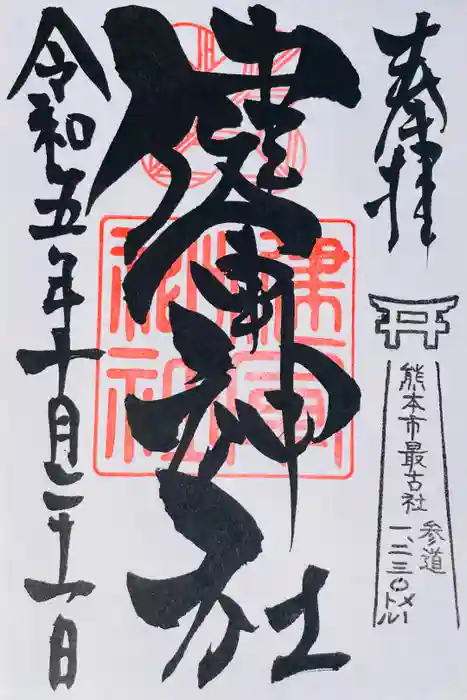 奉拝
熊本市最古社
参道
一、二三〇メートル
健軍神社
健軍神社
令和五年十月二十一日